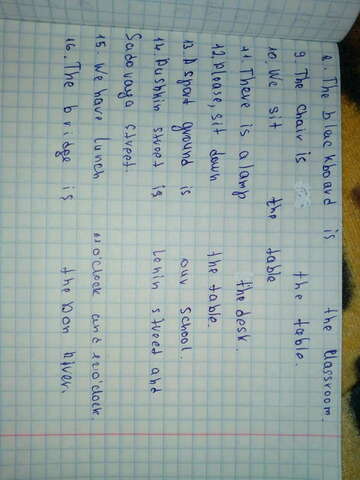 8. The blackboard is the classroom.
9. The chair is the table.
10. We sit the table
11. There is a lamp the desk.
12. Please, sit down the table.
13 A sport ground is our school.
14. Pushkin street is Lenin street and
Sadovaya street.
15. We have lunch o'clock and o'clock.
16. The bridge is the Don River.